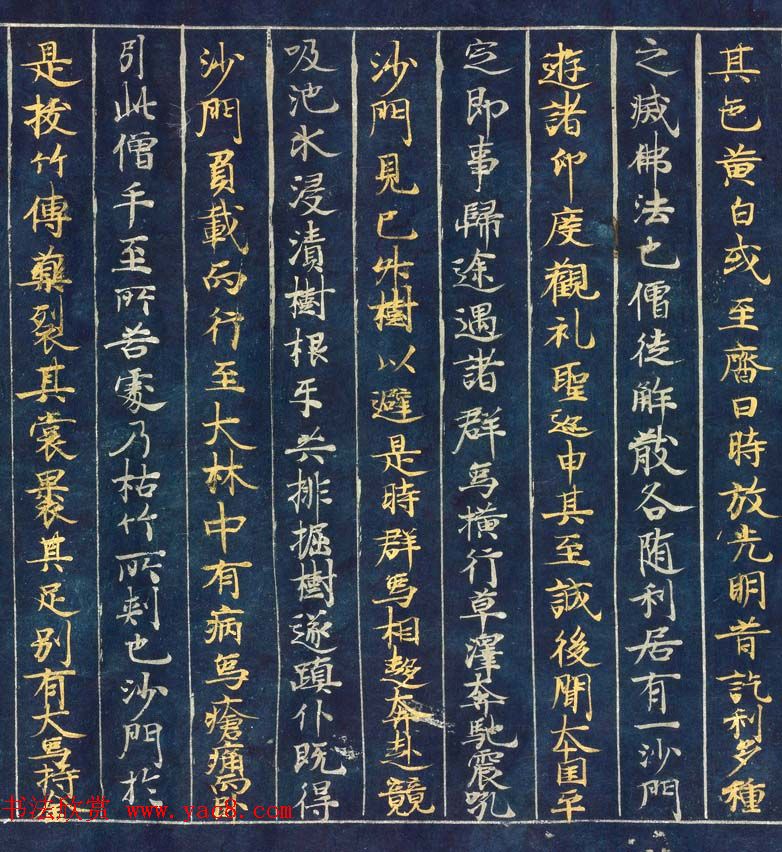 其色黄白或至齋日時放光明昔訖利多種
之滅佛法也僧徒解散各随利居有一沙門
遊諸印度觀礼聖迹申其至誠後聞本国平
定即事歸途遇諸群象橫行草澤奔馳震吼
沙門見已昇樹以避是時群象相趨奔赴競
吸池水浸漬樹根牙共排掘樹遂蹎仆既得
沙門負載而行至大林中有病象瘡痛而卧
引此僧手至所苦處乃枯竹所刺也沙門於
是拔竹傳藥裂其裳裹其足別有大象持
书法欣赏 www.yac8.com